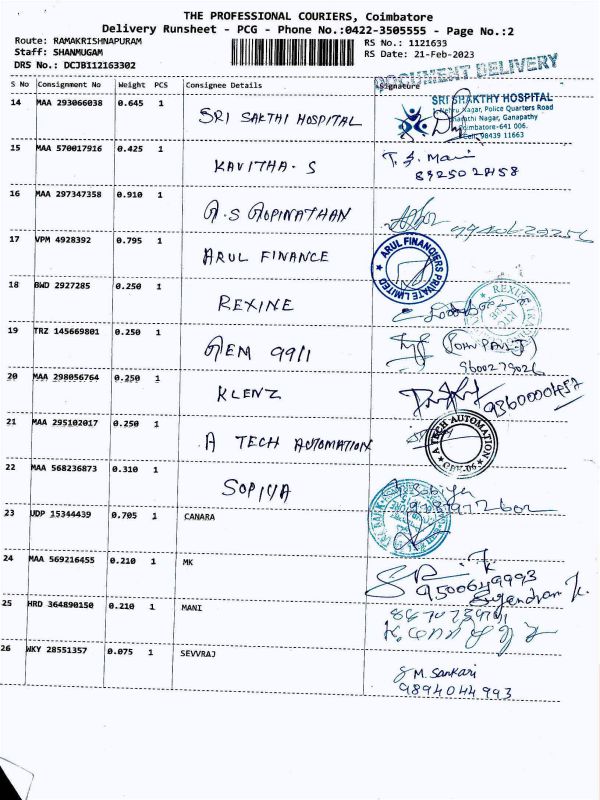 THE PROFESSIONAL COURIERS, Coimbatore
Delivery Runsheet - PCG - Phone No.:0422-3505555 - Page No.:2
Route: RAMAKRISHNAPURAM
Staff: SHANMUGAM
DRS No.: DCJB112163302
RS No.: 1121633
RS Date: 21-Feb-2023
DOCUMENT DELIVERY
S No Consignment No Weight PCS Consignee Details Signature
14 MAA 293066038 0.645 1 SRI SAKTHI HOSPITAL
SRI SHAKTHY HOSPITAL
Nehru Nagar, Police Quarters Road
Bharathi Nagar, Ganapathy
Coimbatore-641 006.
Cell: 98439 11663
15 MAA 570017916 0.425 1 KAVITHA. S
16 MAA 297347358 0.910 1 G.S GOPINATHAN
17 VPM 4928392 0.795 1 ARUL FINANCE
ARUL FINANCIERS PRIVATE LIMITED
18 BWD 2927285 0.250 1 REXINE
19 TRZ 145669801 0.250 1 GEM 9911
20 MAA 298056764 0.250 1 KLENZ
21 MAA 295102017 0.250 1 A TECH AUTOMATION
A TECH AUTOMATION
CBE-06
22 MAA 568236873 0.310 1 SOPIYA
23 UDP 15344439 0.705 1 CANARA
24 MAA 569216455 0.210 1 MK
9500649993
25 HRD 364890150 0.210 1 MANI
26 WKY 28551357 0.075 1 SEVVRAJ
M. Sankari
9894044993